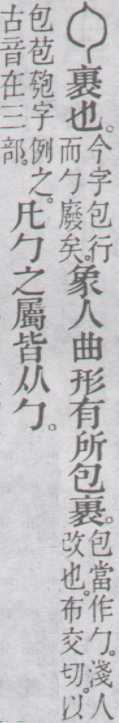 裹也。今字包行
而勹廢矣。象人曲形有所包裹。包當作勹。淺人
改也。布交切。以
包苞匏字例之。
古音在三部。凡勹之屬皆从勹。